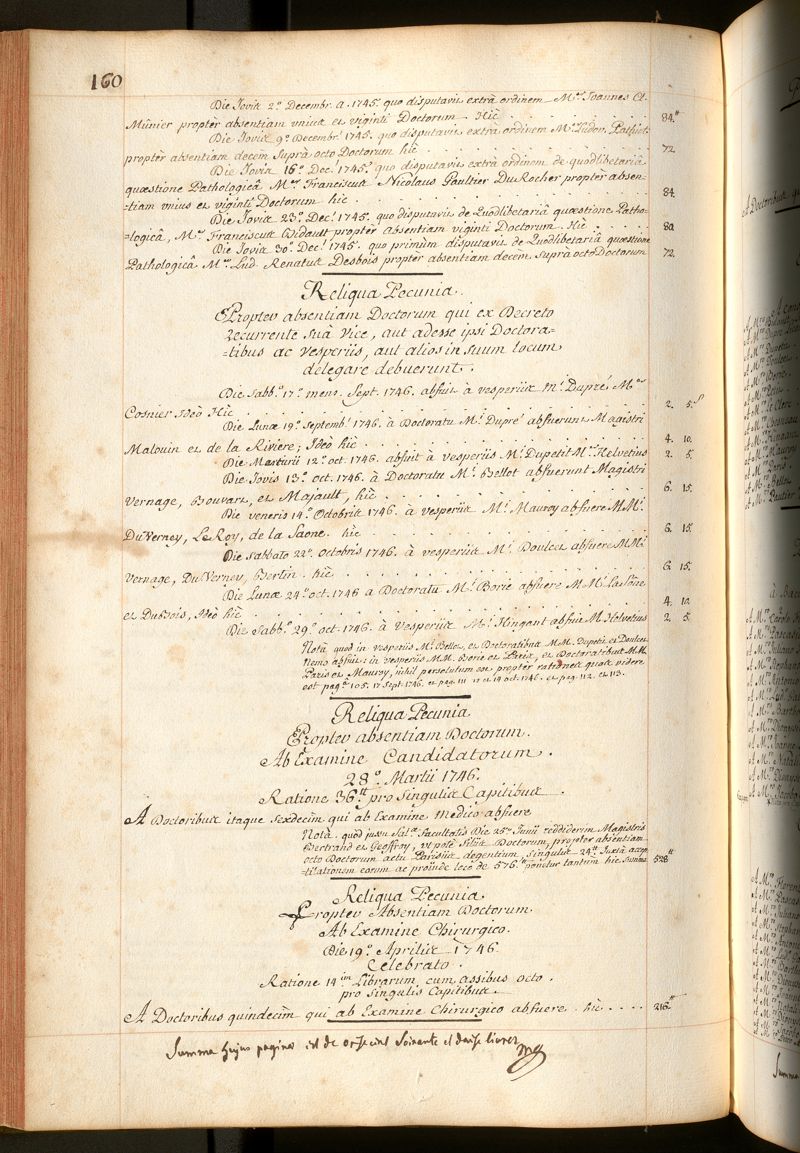 160
Die Jovis 2.ª Decembr. a. 1745. quo disputavit extrà ordinem M.er Ivannes Cl.
Mûnier proptèr absentiam unius et viginti Doctorum Hic . . . . . 84.tt
Die Jovis 9.ª Decembr. 1745. quo disputavit extrà ordinem M.er Ludov. Pathiot
proptèr absentiam decem suprà octo Doctorum hîc . . . . . 72.
Die Jovis 16.ª Dec. 1745. quo disputavit extrà ordinem de quodlibetariâ
quæstione Pathologicâ M.er Franciscus Nicolaus Paultier DuRocher propter absen-
-tiam unius et viginti Doctorum hic . . . . . 84.
Die Jovis 23.ª Dec. 1745. quo disputavit de Quodlibetariâ quæstione Patho-
-logicâ, M.er Franciscus Bidault proptèr absentiam viginti Doctorum. Hic . . . . . 80
Die Jovis 30.ª Dec. 1745. quo primùm disputavit de Quodlibetariâ quæstione
Pathologicâ M.er Lud. Renatus Desbois proptèr absentiam decèm suprà octo Doctorum 72.
Reliqua Pecunia.
Proptèr absentiam Doctorum qui ex Decreto
recurrente suâ vice, aut adesse ipsi Doctora-
-tibus ac vesperiis, aut alios in suum locum
delegare debuerunt.
Die Sabb.º 17.ª mens. Sept. 1746. abfuit à vesperiis M.i Dupré M.er
Cosnier Ideò Hîc . . . . . 2. 5.s
Die Lunæ 19.ª Septemb. 1746. à Doctoratu M.i Dupré abfuerunt Magistri
Malouin et de la Riviere; Ideò hîc . . . . . 4. 10.
Die Martis 12.ª oct. 1746. abfuit à vesperiis M.i Dupetit M.er Helvetius 2. 5.
Die Jovis 13.ª oct. 1746. à Doctoratu M.i Bellot abfuerunt Magistri
Vernage, Bouvart, et Majault, hîc . . . . . 6. 15.
Die veneris 14.ª Octobris 1746. à vesperiis M.i Mauroy abfuere MM.i
DuVerney, LeRoy, de la Saone. hîc . . . . . 6. 15.
Die sabbato 22.ª octobris 1746. à vesperiis M.i Doulcet abfuere MM.i
Vernage, DuVerney, Bertin. hîc . . . . . 6. 15.
Die Lunæ 24.ª oct. 1746 à Doctoratu M.i Borie abfuere MM. LaSône
et DuBois, Ideò hîc . . . . . 4. 10.
Die Sabb.º 29.ª oct. 1746. à vesperiis M.i Hingant abfuit M. Helvetius 2. 5.
Notâ quod in vesperiis M.i Bellot, et Doctoratibus MM. Dupetit et Doulcet
Nemo abfuit; in vesperiis MM. Borie et Paris, et Doctoratibus MM.
Paris et Mauroy, nihil persolutum est propter rationes quas videre
est pag.ª 105. 17 Sept. 1746. et pag. 111 17 et 19 oct. 1746. et pag. 112. et 113.
Reliqua Pecunia
Proptèr absentiam Doctorum.
Ab Examine Candidatorum.
28.º Martii 1746.
Ratione 36.tt pro Singulis Capitibus.
A Doctoribus itaque Sexdecim qui ab Examine Medico abfuere
Notâ. quod jussu Sal.æ Facultatis Die 25.ª Junii reddiderim Magistris
Bertrand et Geoffroy, ut potè Filiis Doctorum, propter absentiam
octo Doctorum actu Parisiis degentium, singulis 24.tt Juxtà accep-
-tilationem eorum ac proindè loco de 576.tt ponitur tantùm hîc Summa 528.tt
Reliqua Pecunia
Proptèr Absentiam Doctorum.
Ab Examine Chirurgico.
Die 19.ª Aprilis 1746
Celebrato.
Ratione 14.im Librarum cum assibus octo.
pro Singulis Capitibus.
A Doctoribus quindecim qui ab Examine Chirurgico abfuere. hîc . . . . 216.tt
Summa hujus paginae est de onze cent soixante et douze livres